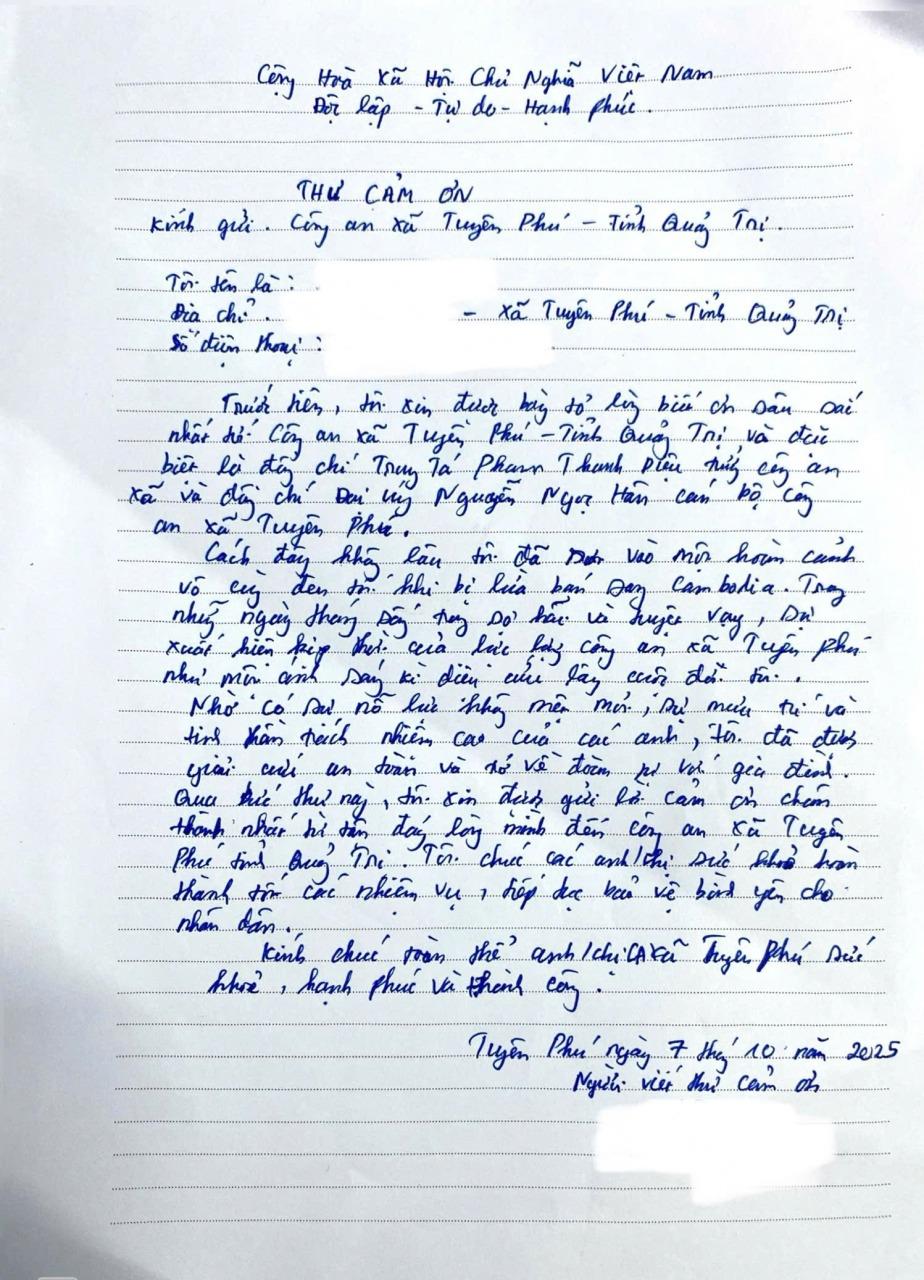 Cộng Hoà Xã Hội Chủ Nghĩa Việt Nam
Độc lập - Tự do - Hạnh phúc.
THƯ CẢM ƠN
Kính gửi. Công an xã Tuyên Phú - Tỉnh Quảng Trị.
Tôi tên là :
Địa chỉ . - xã Tuyên Phú - Tỉnh Quảng Trị
Số điện thoại :
Trước tiên, tôi xin được bày tỏ lòng biết ơn sâu sắc
nhất tới Công an xã Tuyên Phú - Tỉnh Quảng Trị, và đặc
biệt là đồng chí Trung Tá Phạm Thanh Diệu trưởng công an
xã và đồng chí Đại uý Nguyễn Ngọc Hân cán bộ công
an xã Tuyên Phú.
Cách đây không lâu tôi đã rơi vào một hoàn cảnh
vô cùng đen tối khi bị lừa bán sang Cambodia. Trong
những ngày tháng sống trong sợ hãi và tuyệt vọng, sự
xuất hiện kịp thời của lực lượng công an xã Tuyên Phú
như một ánh sáng kì diệu cứu lấy cuộc đời tôi.
Nhờ có sự nỗ lực không mệt mỏi, sự mưu trí và
tinh thần trách nhiệm cao của các anh, tôi đã được
giải cứu an toàn và trở về đoàn tụ với gia đình.
Qua bức thư này, tôi xin được gửi lời cảm ơn chân
thành nhất từ tận đáy lòng mình đến công an xã Tuyên
Phú tỉnh Quảng Trị. Tôi chúc các anh/chị sức khoẻ hoàn
thành tốt các nhiệm vụ, tiếp tục bảo vệ bình yên cho
nhân dân.
Kính chúc toàn thể anh/chị CA xã Tuyên Phú sức
khoẻ, hạnh phúc và thành công.
Tuyên Phú ngày 7 tháng 10 năm 2025
Người viết thư cảm ơn